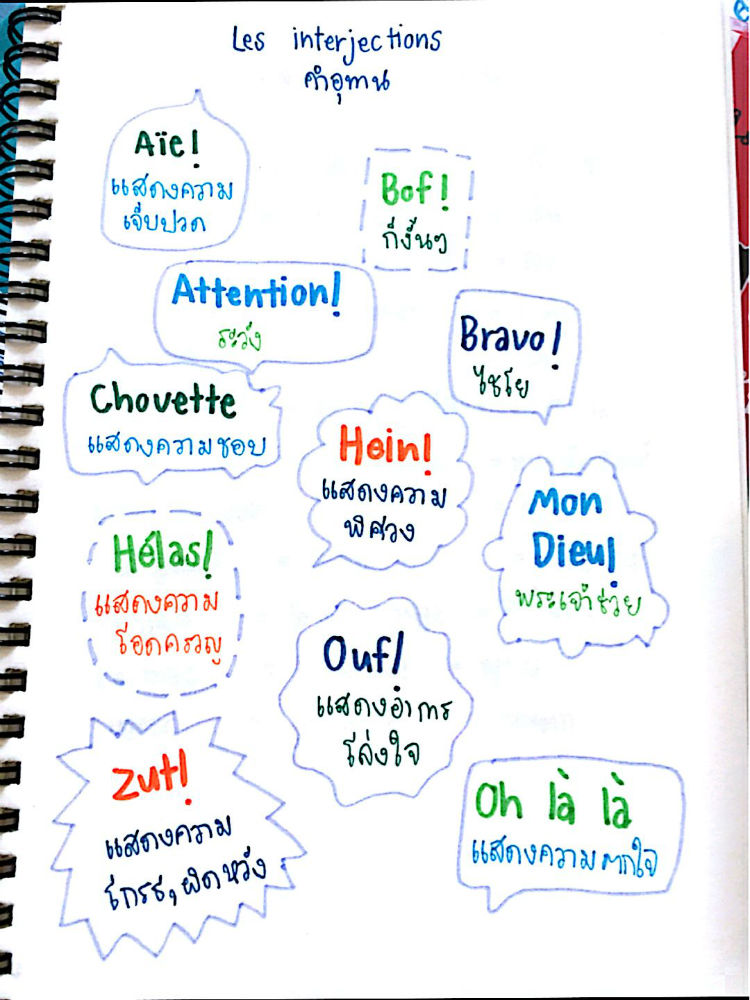 Les interjections
คำอุทาน
Aïe!
แสดงความ
เจ็บปวด
Bof!
ก็งั้นๆ
Attention!
ระวัง
Bravo!
ไชโย
Chouette
แสดงความชอบ
Hein!
แสดงความ
พิศวง
Mon
Dieu!
พระเจ้าช่วย
Hélas!
แสดงความ
โอดครวญ
Ouf!
แสดงอาการ
โล่งใจ
Zut!
แสดงความ
โกรธ, ผิดหวัง
Oh là là
แสดงความตกใจ